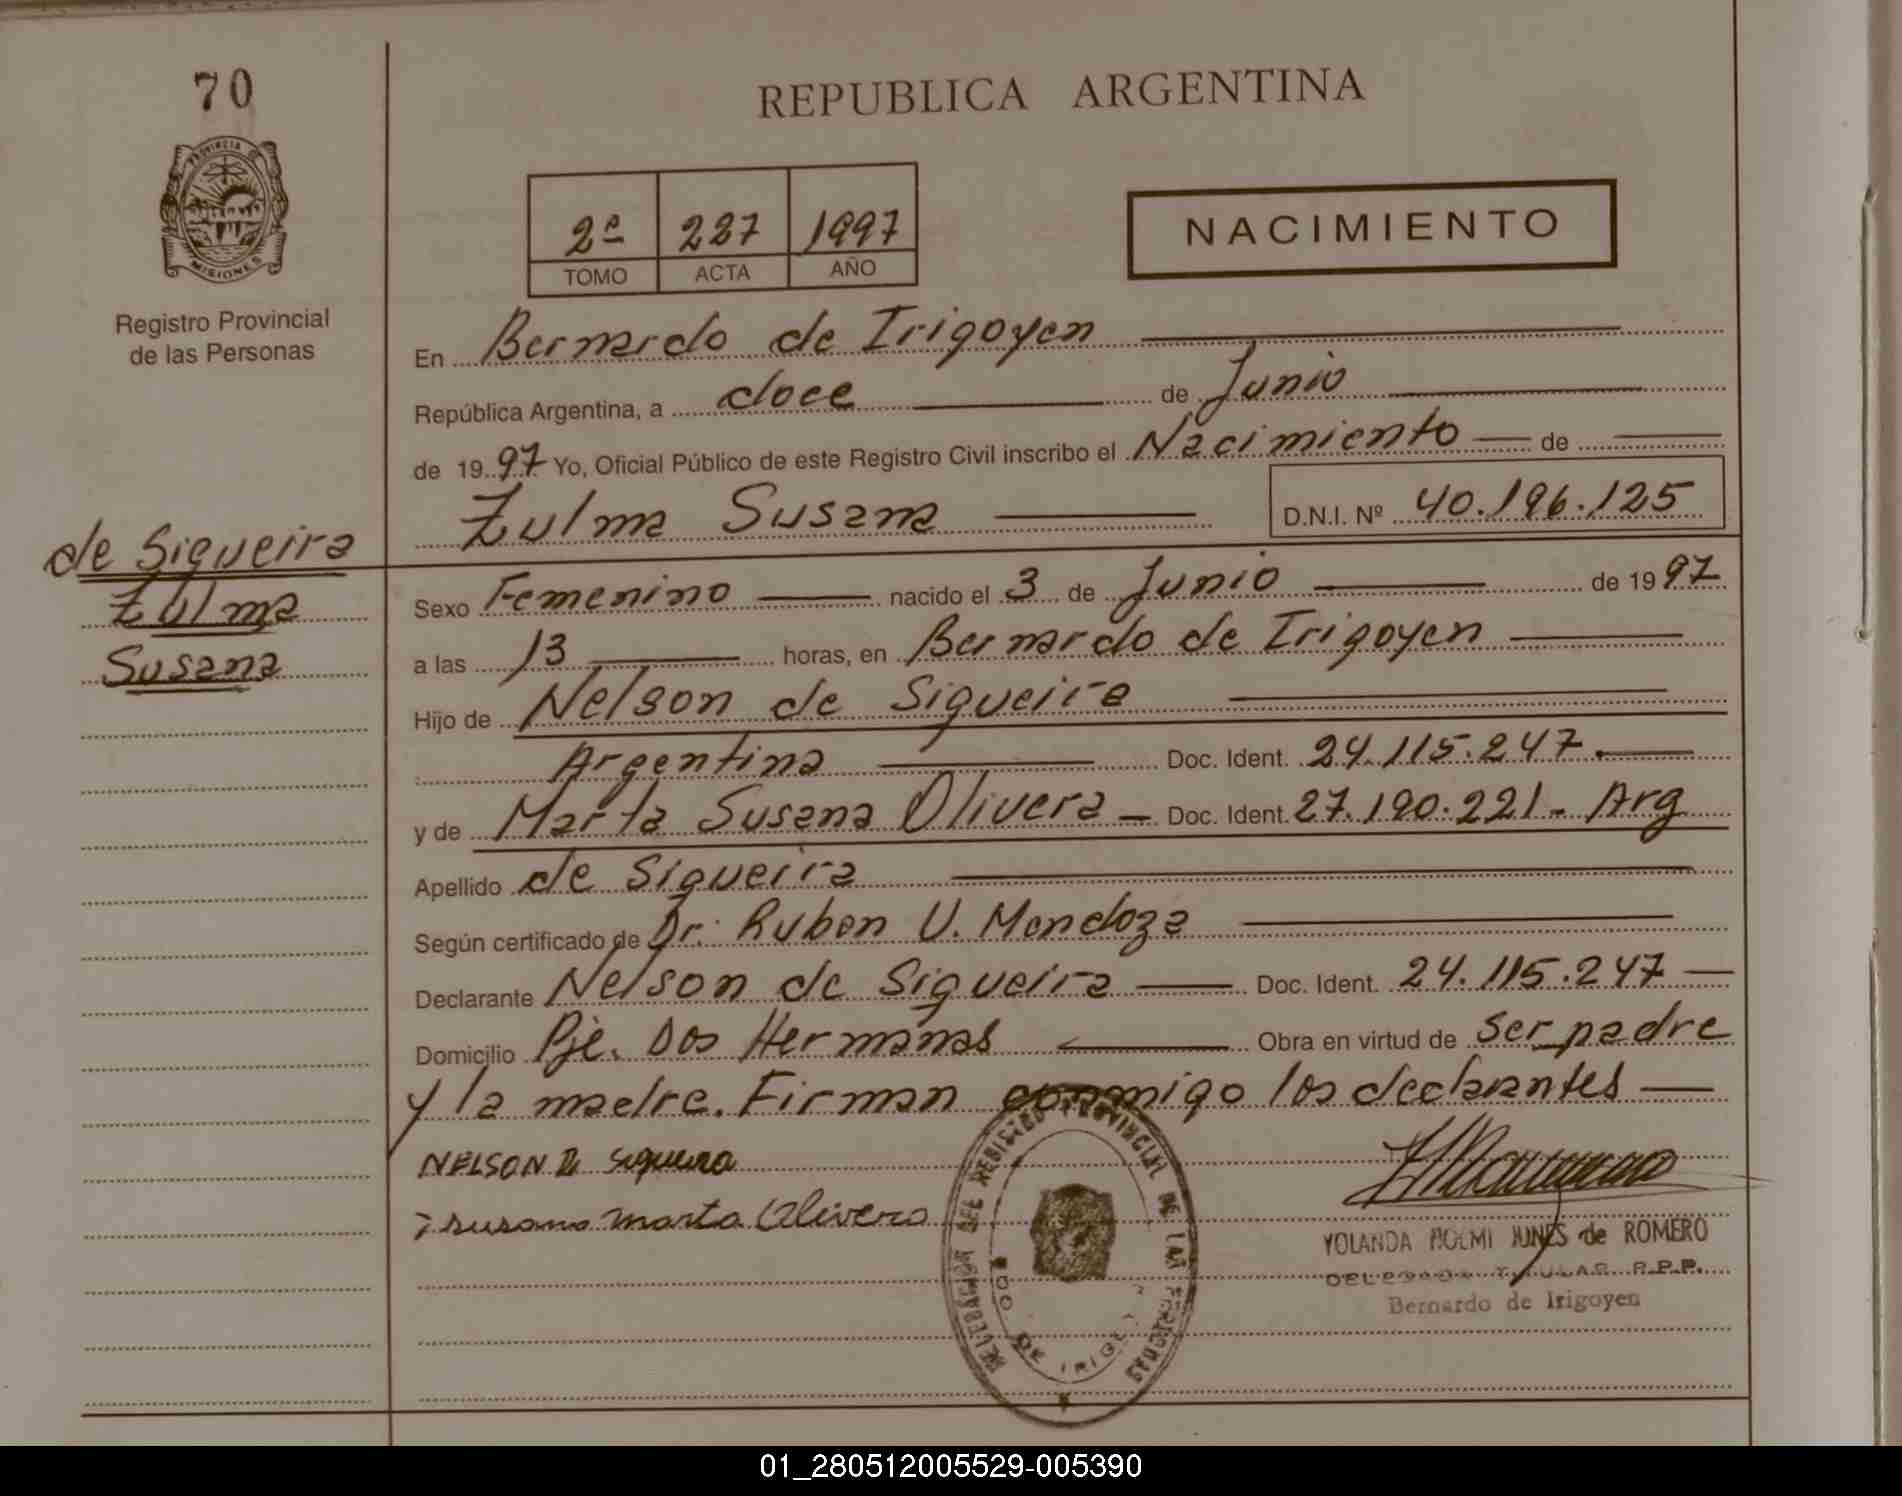 70
PROVINCIA DE
MISIONES
Registro Provincial
de las Personas
REPUBLICA ARGENTINA
2º 227 1997
TOMO ACTA AÑO
NACIMIENTO
En Bernardo de Irigoyen
República Argentina, a doce de Junio
de 1997 Yo, Oficial Público de este Registro Civil inscribo el Nacimiento de
Zulma Susana D.N.I. Nº 40.196.125
de Siqueira
Zulma
Susana
Sexo Femenino nacido el 3 de Junio de 1997
a las 13 horas, en Bernardo de Irigoyen
Hijo de Nelson de Siqueira
Argentina Doc. Ident. 24.115.247.
y de Marta Susana Olivera - Doc. Ident. 27.190.221- Arg
Apellido de Siqueira
Según certificado de Dr. Ruben U. Mendoza
Declarante Nelson de Siqueira Doc. Ident. 24.115.247
Domicilio Pje. Dos Hermanas Obra en virtud de ser padre
y la madre. Firman conmigo los declarantes
NELSON D Siqueira
susana marta Olivera
DEL REGISTRO PROVINCIAL DE LAS PERSONAS
DE IRIGOYEN
YOLANDA de ROMERO
TITULAR R.P.P.
Bernardo de Irigoyen
01_280512005529-005390